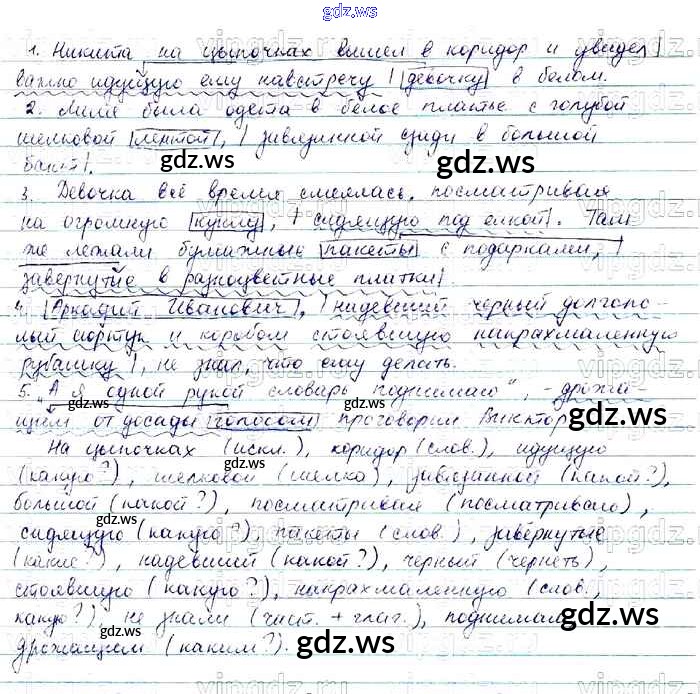 gdz.ws
1. Никита на цыпочках вышел в коридор и увидел
важно идущую ему навстречу девочку в белом.
2. Лиля была одета в белое платье с голубой
шелковой лентой, завязанной сзади в большой
бант.
3. Девочка всё время смеялась, посматривая
на огромную куклу, сидящую под елкой. Там
же лежали бумажные пакеты с подарками,
завернутые в разноцветные платки.
4. Аркадий Иванович, надевший черный долгопо-
лый сюртук и коробом стоявшую накрахмаленную
рубашку, не знал, что ему делать.
5. „А я одной рукой словарь поднимаю", - дрожа-
щим от досады голосом проговорил Виктор
На цыпочках (искл.), коридор (слов.), идущую
(какую?), шелковой (шелка), завязанной (какой?),
большой (какой?), посматривая (посматриваю),
сидящую (какую?), пакеты (слов.), завёрнутые
(какие?), надевший (какой?), черный (чернеть),
стоявшую (какую?), накрахмаленную (слов.,
какую?), не знал (част. + глаг.),
дрожащим (каким?).
gdz.ws
gdz.ws
gdz.ws
gdz.ws
gdz.ws
gdz.ws
gdz.ws
gdz.ws
gdz.ws
gdz.ws